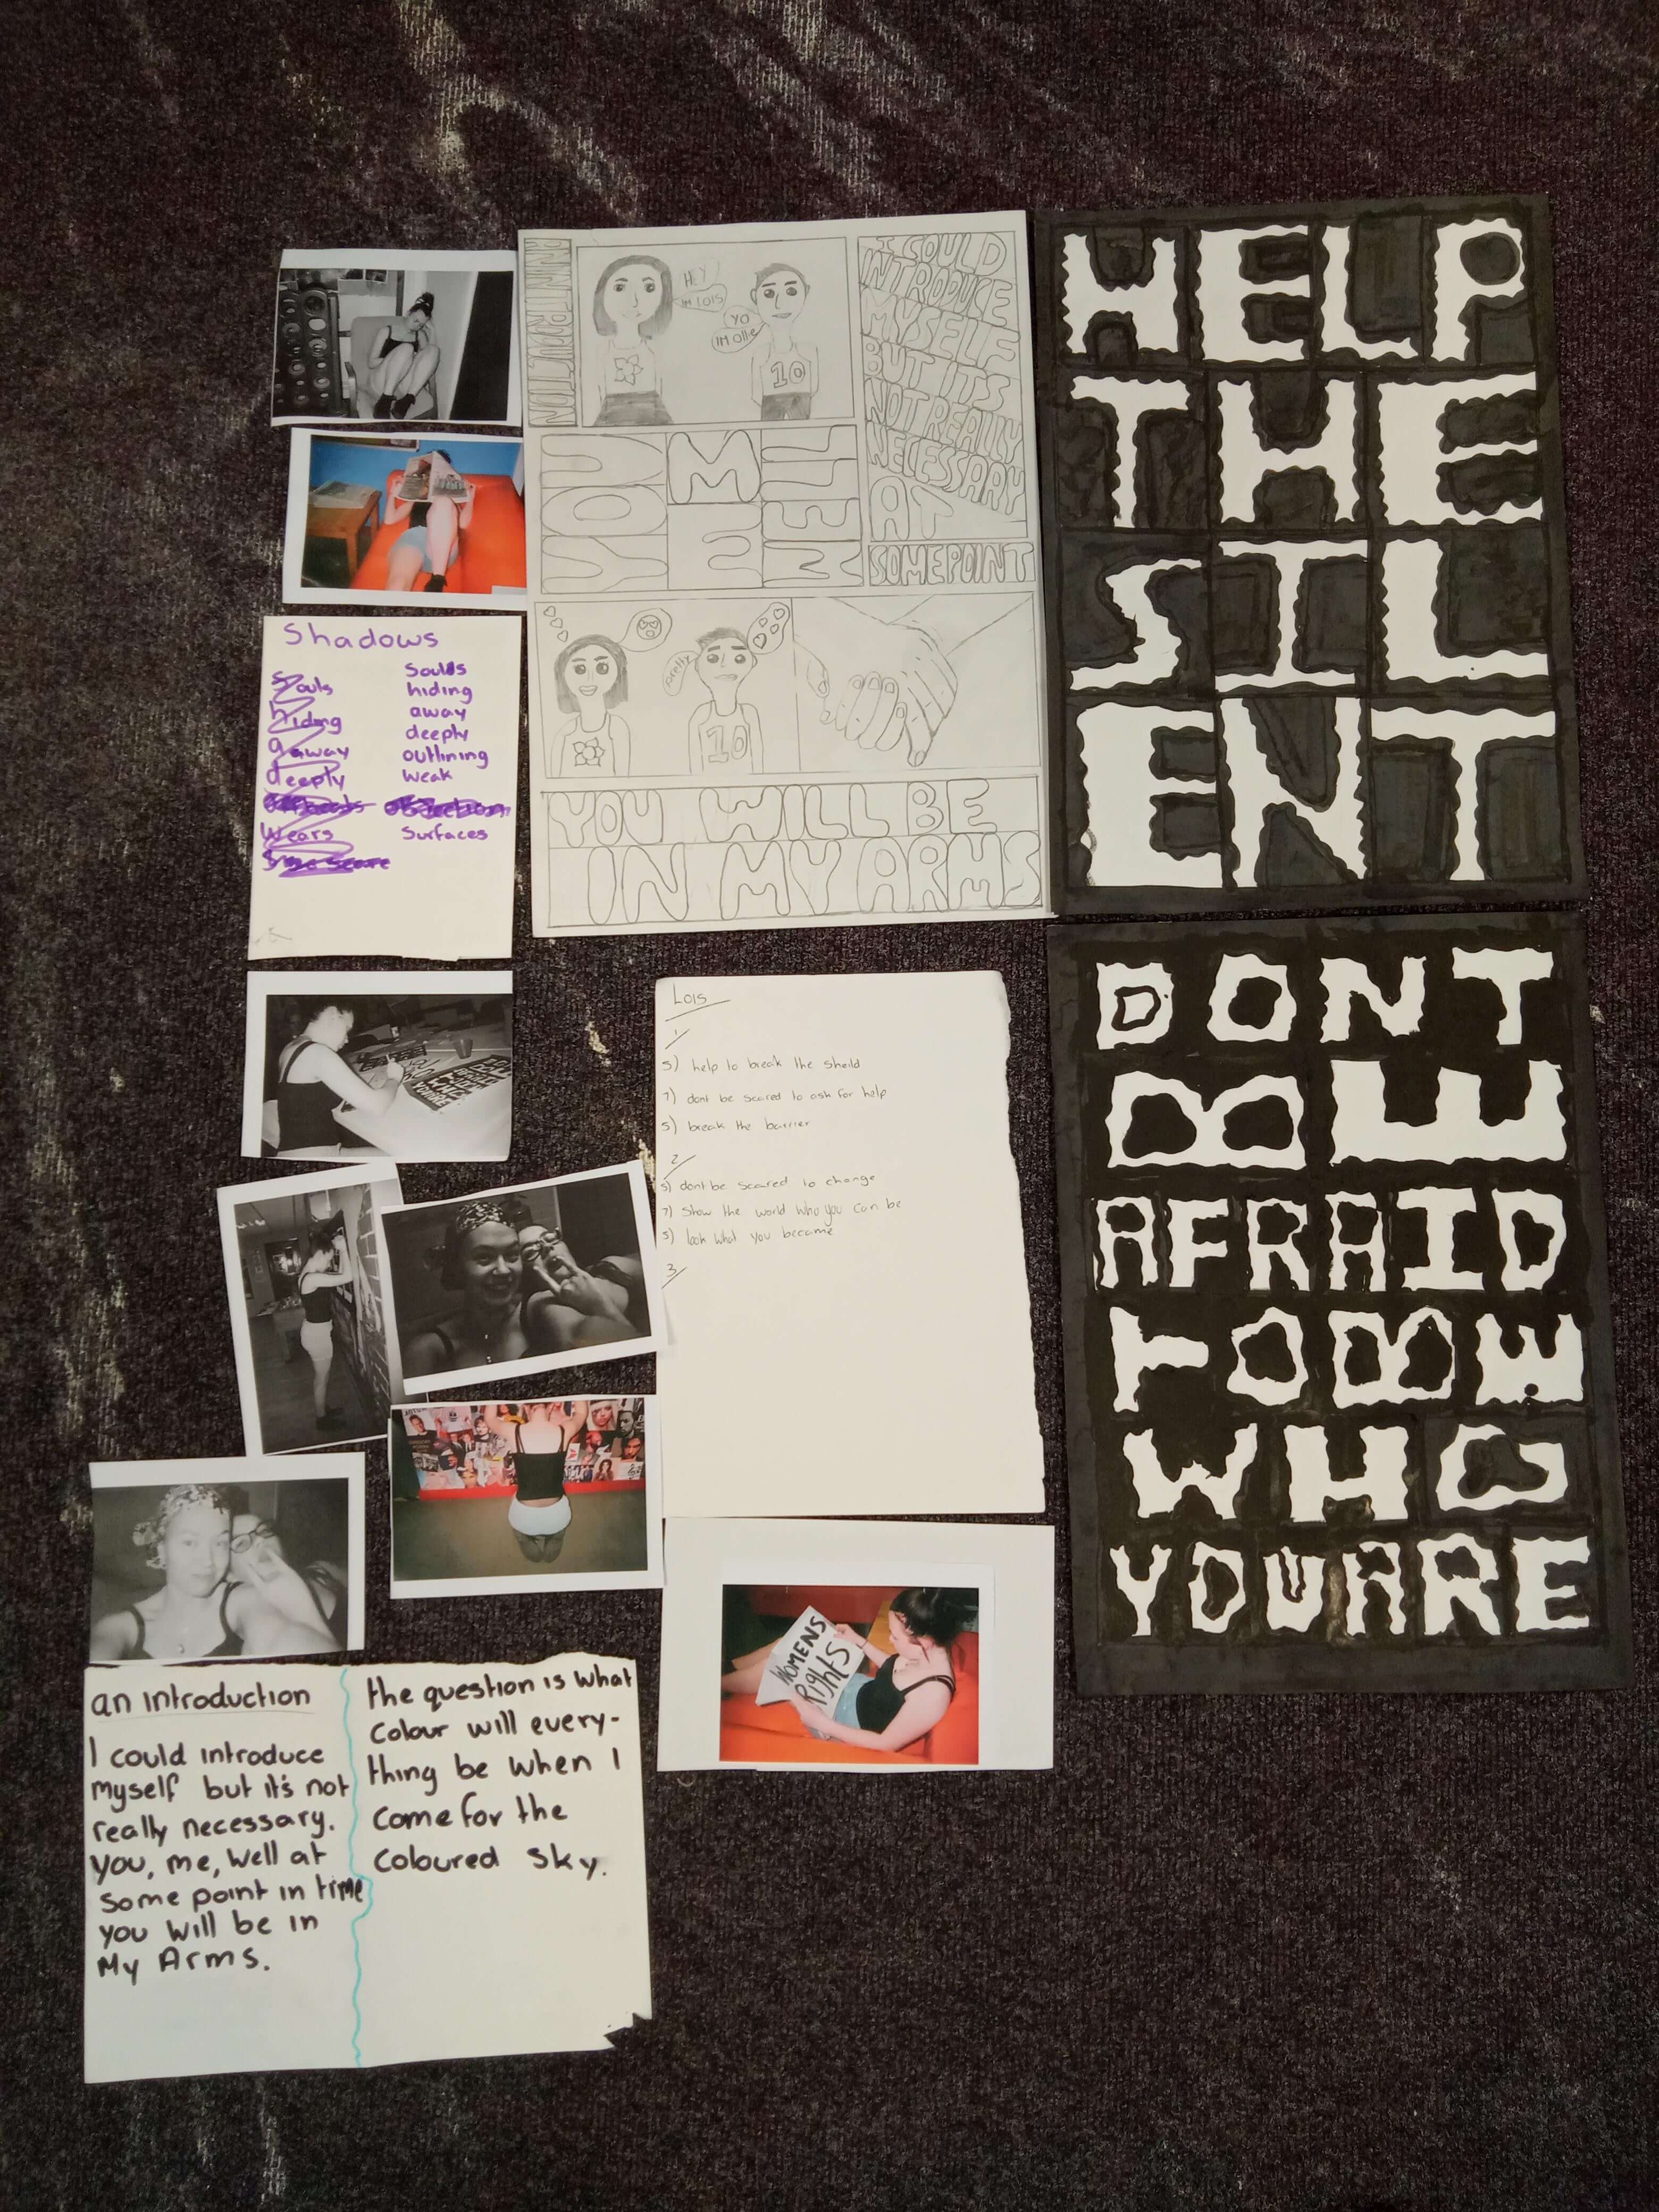 AN INTRODUCTION
HEY
IM LOIS
YO
IM Ollie
10
I COULD
INTRODUCE
MYSELF
BUT ITS
NOT REALLY
NECESSARY
AT
SOMEPOINT
YOU
ME
WELL
Pretty
10
YOU WILL BE
IN MY ARMS
HELP
THE
SIL
ENT
Shadows
Souls
hiding
away
deeply
Wears
Soulds
hiding
away
deeply
outlining
weak
Surfaces
Lois
1
5) help to break the sheild
7) dont be scared to ask for help
5) break the barrier
2
5) dont be scared to change
7) Show the world who you can be
5) look what you became
3
DONT
BE
AFRAID
TO BE
WHO
YOU ARE
WOMENS
Rights
an introduction
I could introduce
myself but it's not
really necessary.
You, me, Well at
some point in time
you will be in
My Arms.
the question is what
colour will every-
thing be when I
come for the
coloured sky.